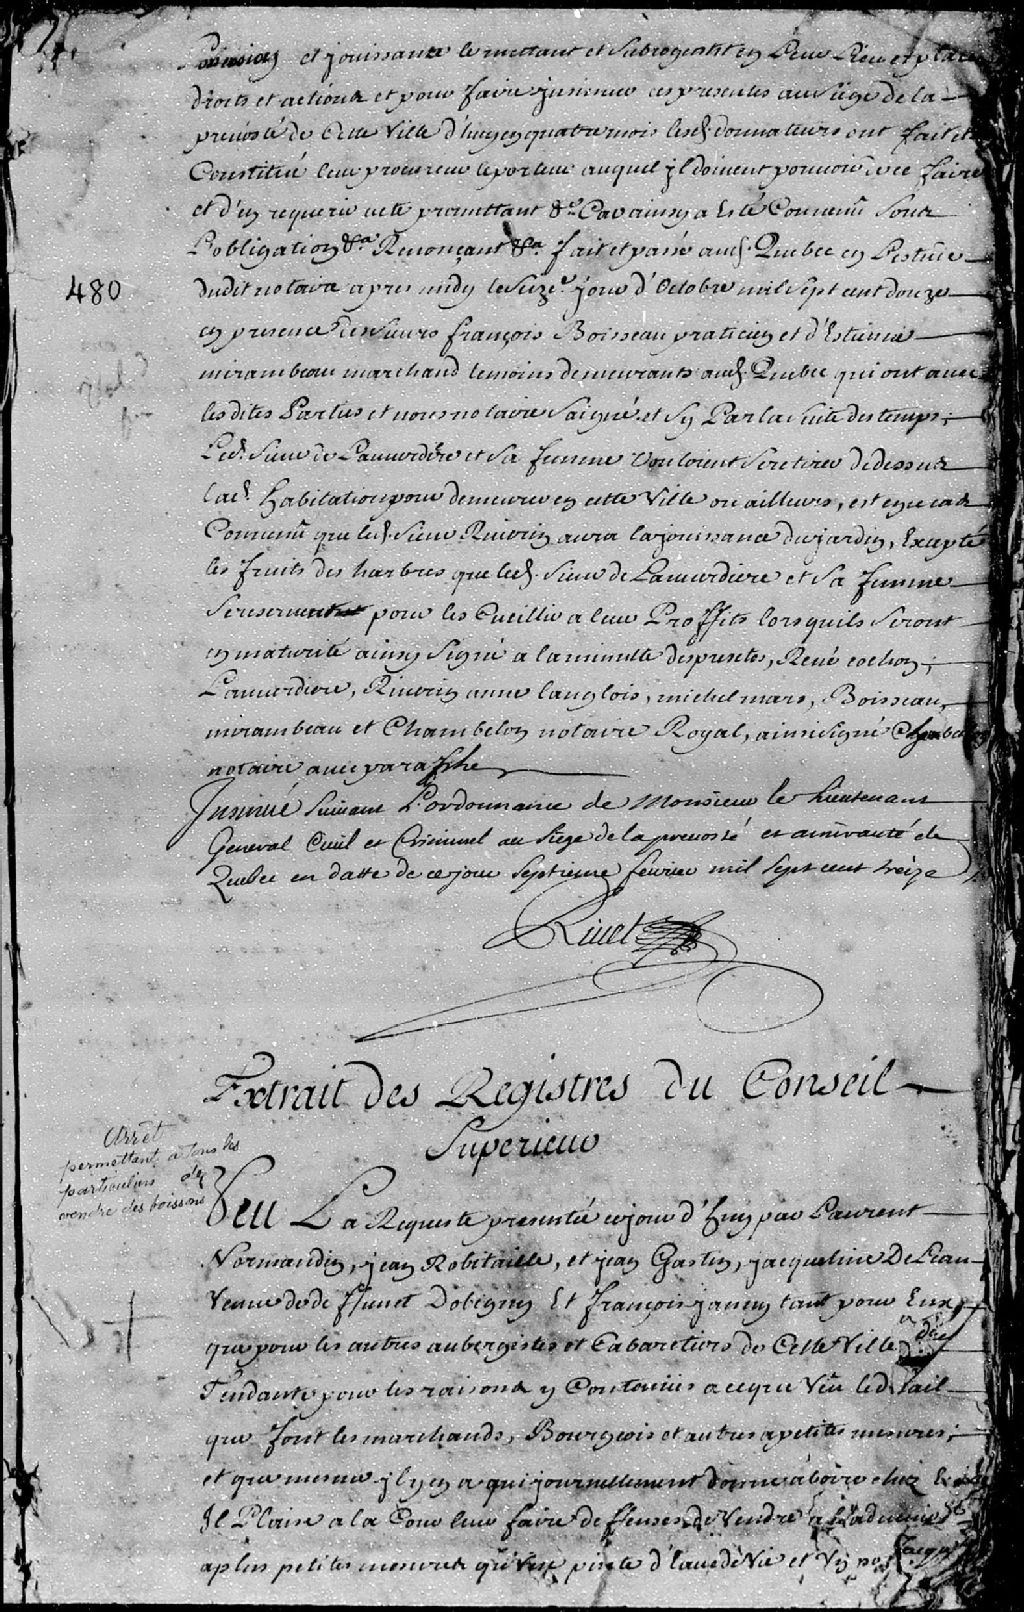 et jouissance le mettant et subrogeant en leur lieu et place
droits et actions et pour faire insinuer ces presentes au siege de la
prevosté de Cette Ville d'huy en quatre mois lesd. donnateurs ont fait et
Constitué leur procureur le porteur auquel jl donnent pouvoir de ce faire
et d'en requerir acte promettant &a. Car ainsy a Esté Convenu Sous
L'obligation &a. Renonçant &a. fait et passé aud. Quebec en L'estude
480
dudit notaire apres midy le seize. jour d'Octobre mil sept cent douze
en presence des sieurs françois Boisseau praticien et d'Estienne
mirambeau marchand temoins demeurants aud. Quebec qui ont avec
lesdites Parties et nous notaire Saigné et Sy Par la Suite des temps;
Led. Sieur de Lamerdiere et Sa femme Vouloient Se retirer de dessus
lad. habitation pour demeurer en cette Ville ou ailleurs, est en ce cas
Convenu que led. Sieur Riverin aura la jouissance du jardin, Excepté
les fruits des harbres que led. Sieur de Lamerdiere et Sa femme
Se reservent pour les Cueillir a leur Proffits lorsquils Seront
en maturité ainsy Signé a la minutte des presentes, René cochon,
Lamerdiere, Riverin anne langlois, michel mars, Boisseau,
mirambeau et Chambelon notaire Royal, ainsi Signé Chambelon
notaire avec paraffhe
Jnsinué Suivant L'ordonnance de Monsieur le Lieutenant
General Civil et Criminel au Siege de la prevosté et amirauté de
Quebec en datte de ce jour Septieme fevrier mil Sept cent treize
Rivet
Extrait des Registres du Conseil
Superieur
Arrêt
permettant a tous les
particuliers de
vendre des boissons
Veu La Requeste presentée ce jour d'huy par Laurent
Normandin, jean Robitaille, et jean Gastin, jacqueline De Leau
Veuve de deffunct Dobigny Et françois janny tant pour Eux
que pour les autres aubergistes et Cabaretiers de Cette Ville
Tendante pour les raisons y Contenües a ce que Veu le detail
que font les marchands, Bourgeois et autres a petites mesures;
et que mesme jl y en a qui journellement donne à boire chez Eux
Il Plaise a la Cour leur faire deffenses de Vendre
a plus petites mesures qu'une pinte d'eau de Vie et Un pot